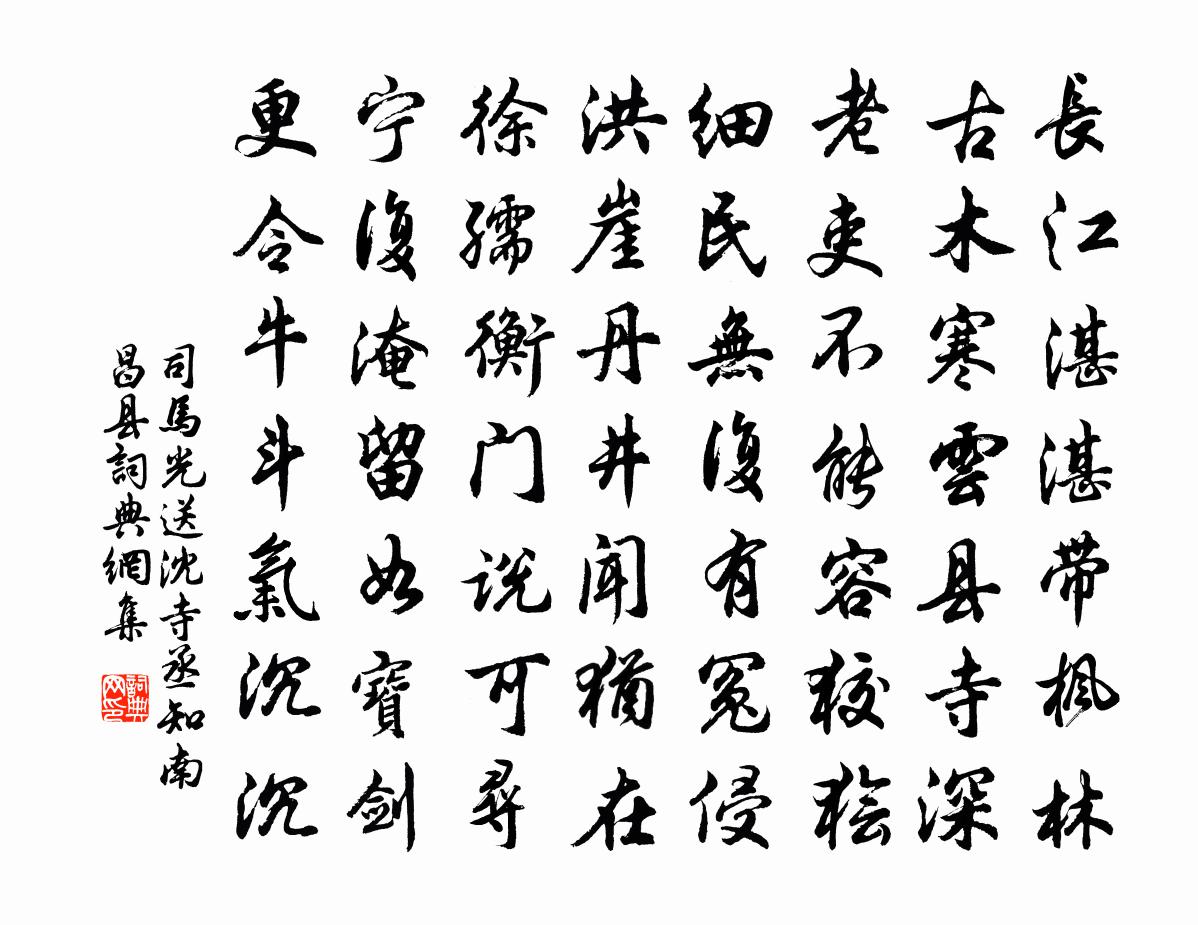 長江湛湛带楓林
古木寒雲县寺深
老吏不能容狡獪
细民無復有冤侵
洪崖丹井闻猶在
徐孺衡门说可尋
宁復淹留如寶劍
更令牛斗氣沉沉
司馬光送沈寺丞知南
昌县詞典網集
詞典
网印